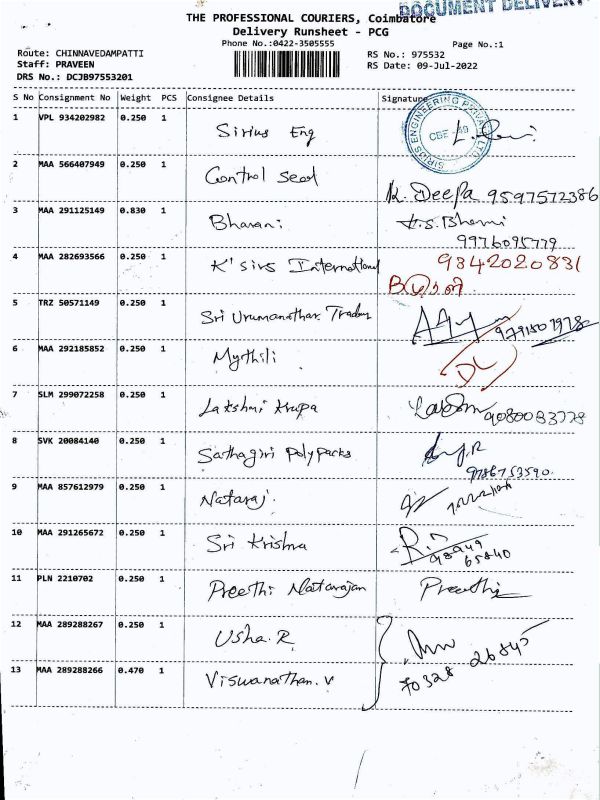 DOCUMENT DELIVERY
THE PROFESSIONAL COURIERS, Coimbatore
Delivery Runsheet - PCG
Phone No.:0422-3505555
Page No.:1
Route: CHINNAVEDAMPATTI
RS No.: 975532
Staff: PRAVEEN
RS Date: 09-Jul-2022
DRS No.: DCJB97553201
S No Consignment No Weight PCS Consignee Details Signature
1 VPL 934202982 0.250 1 Sirius Eng
SIRIUS ENGINEERING PRIVATE LTD. CBE-49
2 MAA 566407949 0.250 1 Control Seal K. Deepa 9597572386
3 MAA 291125149 0.830 1 Bharani
9976095779
4 MAA 282693566 0.250 1 K'sirs International 9842020831
5 TRZ 50571149 0.250 1 Sri Urumanathar Traders
6 MAA 292185852 0.250 1 Mythili DL
7 SLM 299072258 0.250 1 Lakshmi Krupa
8 SVK 20084140 0.250 1 Sathagiri Polypacks
9786753590
9 MAA 857612979 0.250 1 Nataraj
10 MAA 291265672 0.250 1 Sri Krishna
98949
65840
11 PLN 2210702 0.250 1 Preethi Natarajan Preethi
12 MAA 289288267 0.250 1 Usha.R
70328 26845
13 MAA 289288266 0.470 1 Viswanathan.V